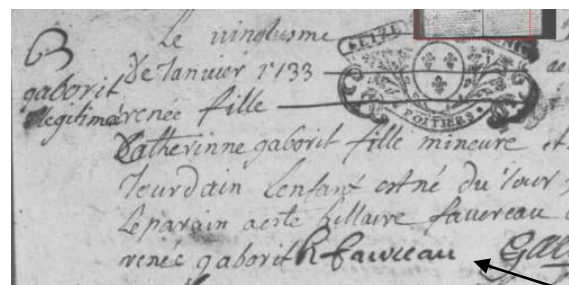 B
gaborit
illegitime
Le vingtusme
De Janvier 1733
renée fille
Catherinne gaborit fille mineure et
Jourdain Lenfant est né du Jour
Le parain a este hillaire favereau
renée gaborit h faureau
POITIERS